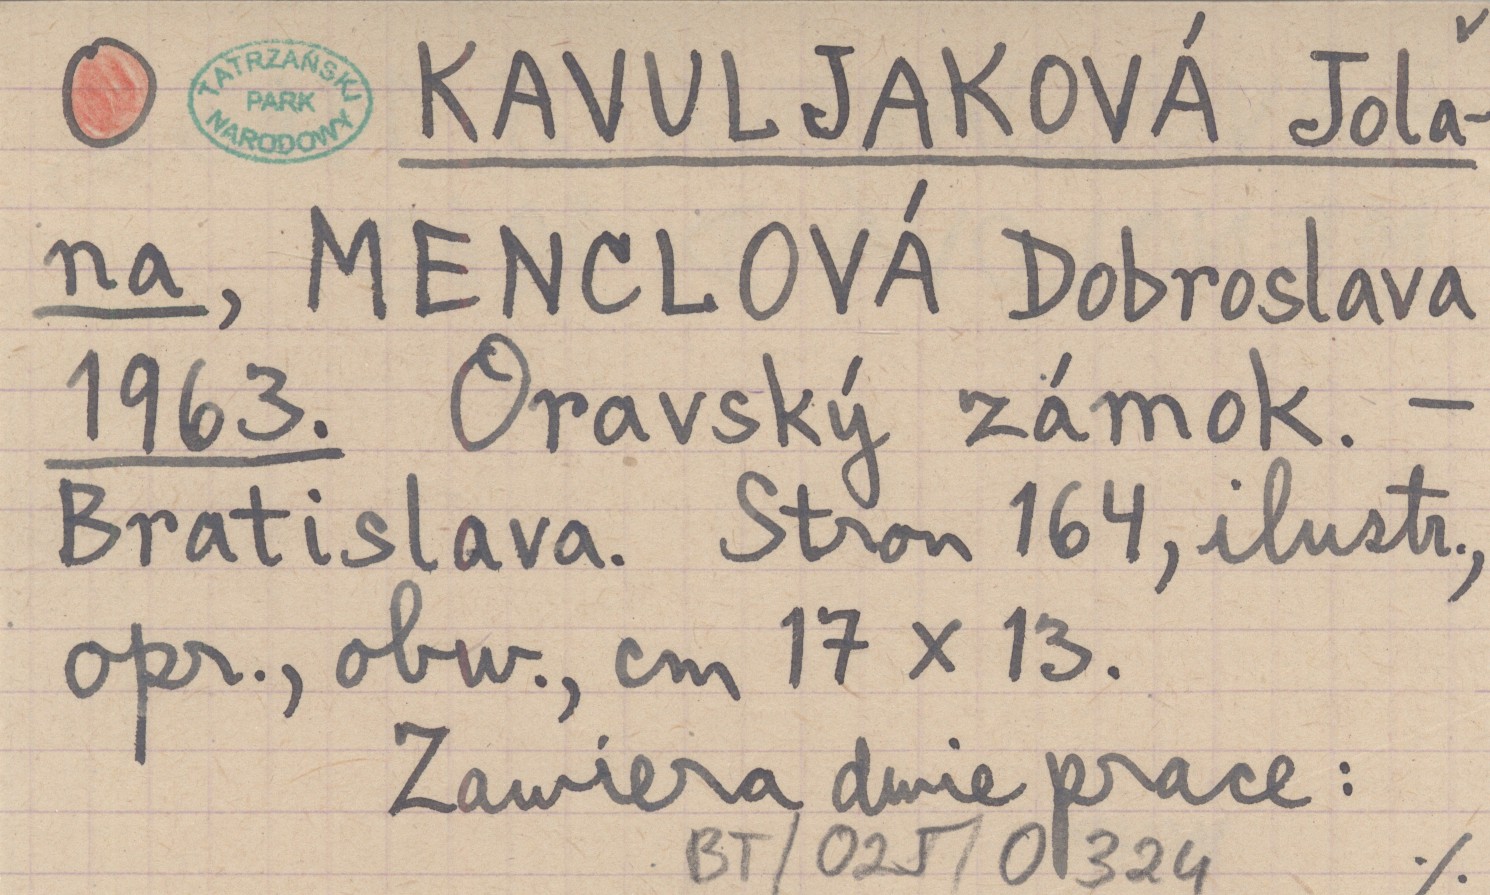 TATRZAŃSKI PARK NARODOWY
KAVULJAKOVÁ Jolǎ-
na, MENCLOVÁ Dobroslava
1963. Oravský zámok. —
Bratislava. Stron 164, ilustr.,
opr., obw., cm 17 x 13.
Zawiera dwie prace:
BT/025/0 324
./.